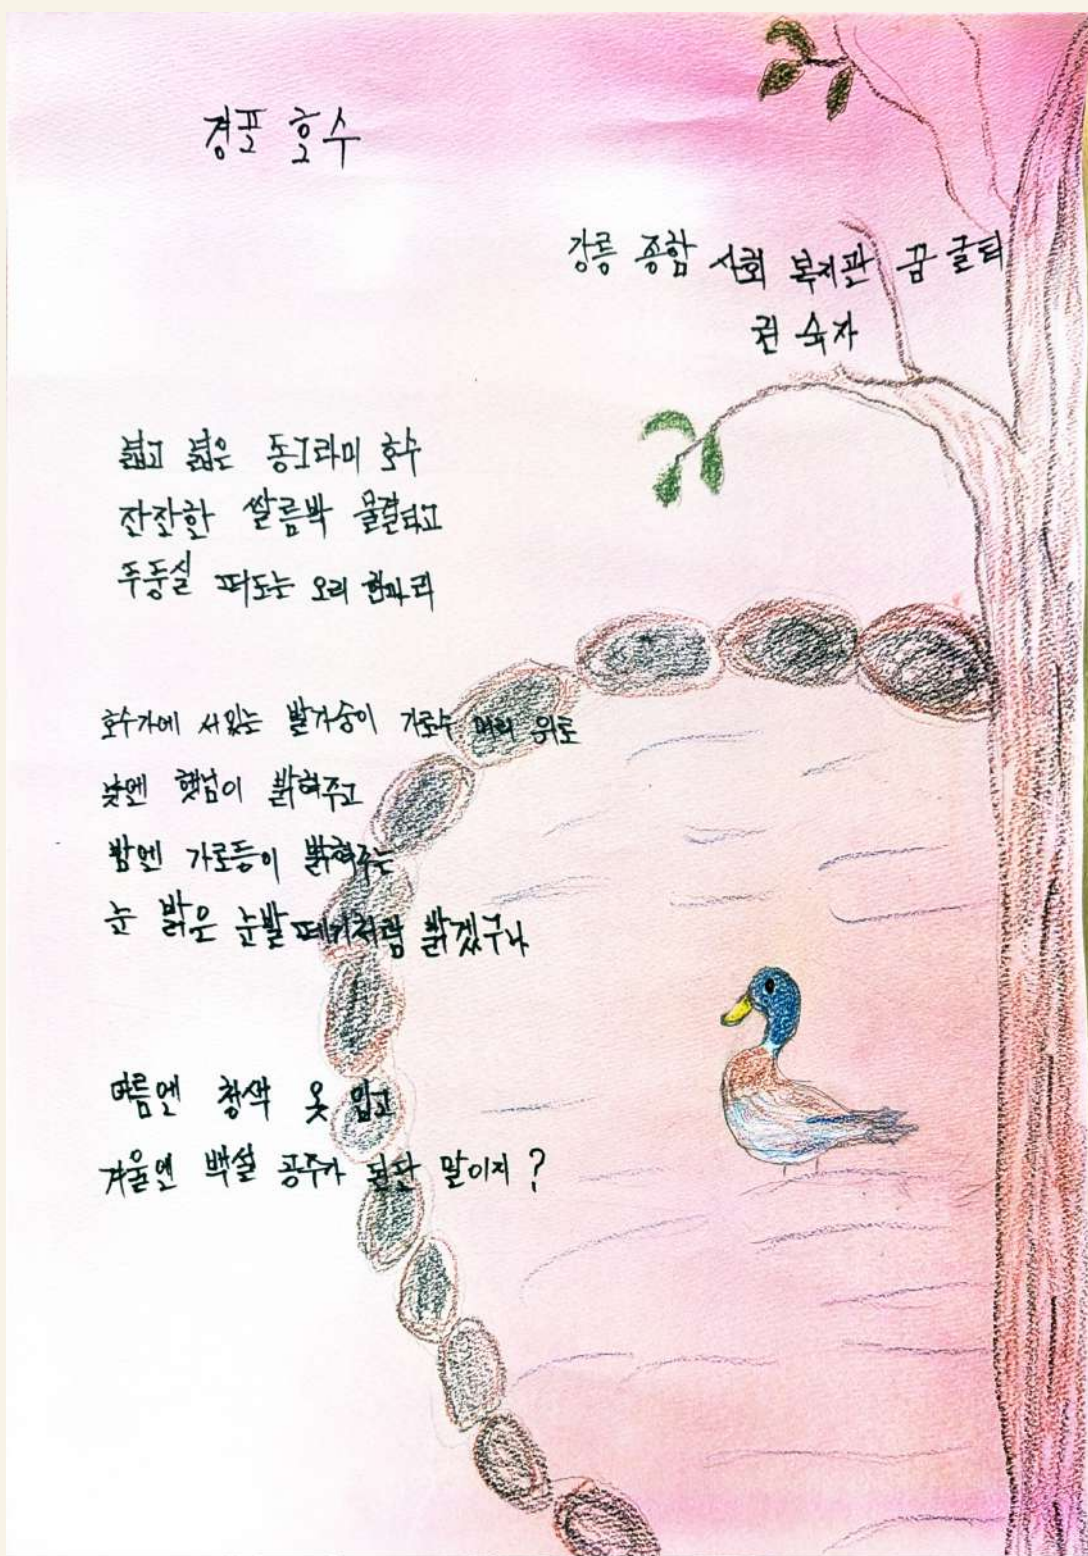 경포 호수
강릉 종합 사회 복지관 꿈 글터
권 숙자
넓고 넓은 동그라미 호수
잔잔한 쌀름박 물결타고
두둥실 떠도는 오리 한마리
호수가에 서있는 발가숭이 가로수 머리 위로
낮엔 햇님이 밝혀주고
밤엔 가로등이 밝혀주는
눈 밝은 눈발 떼기처람 밝겠구나
여름엔 청색 옷 입고
겨울엔 백설 공주가 된단 말이지 ?